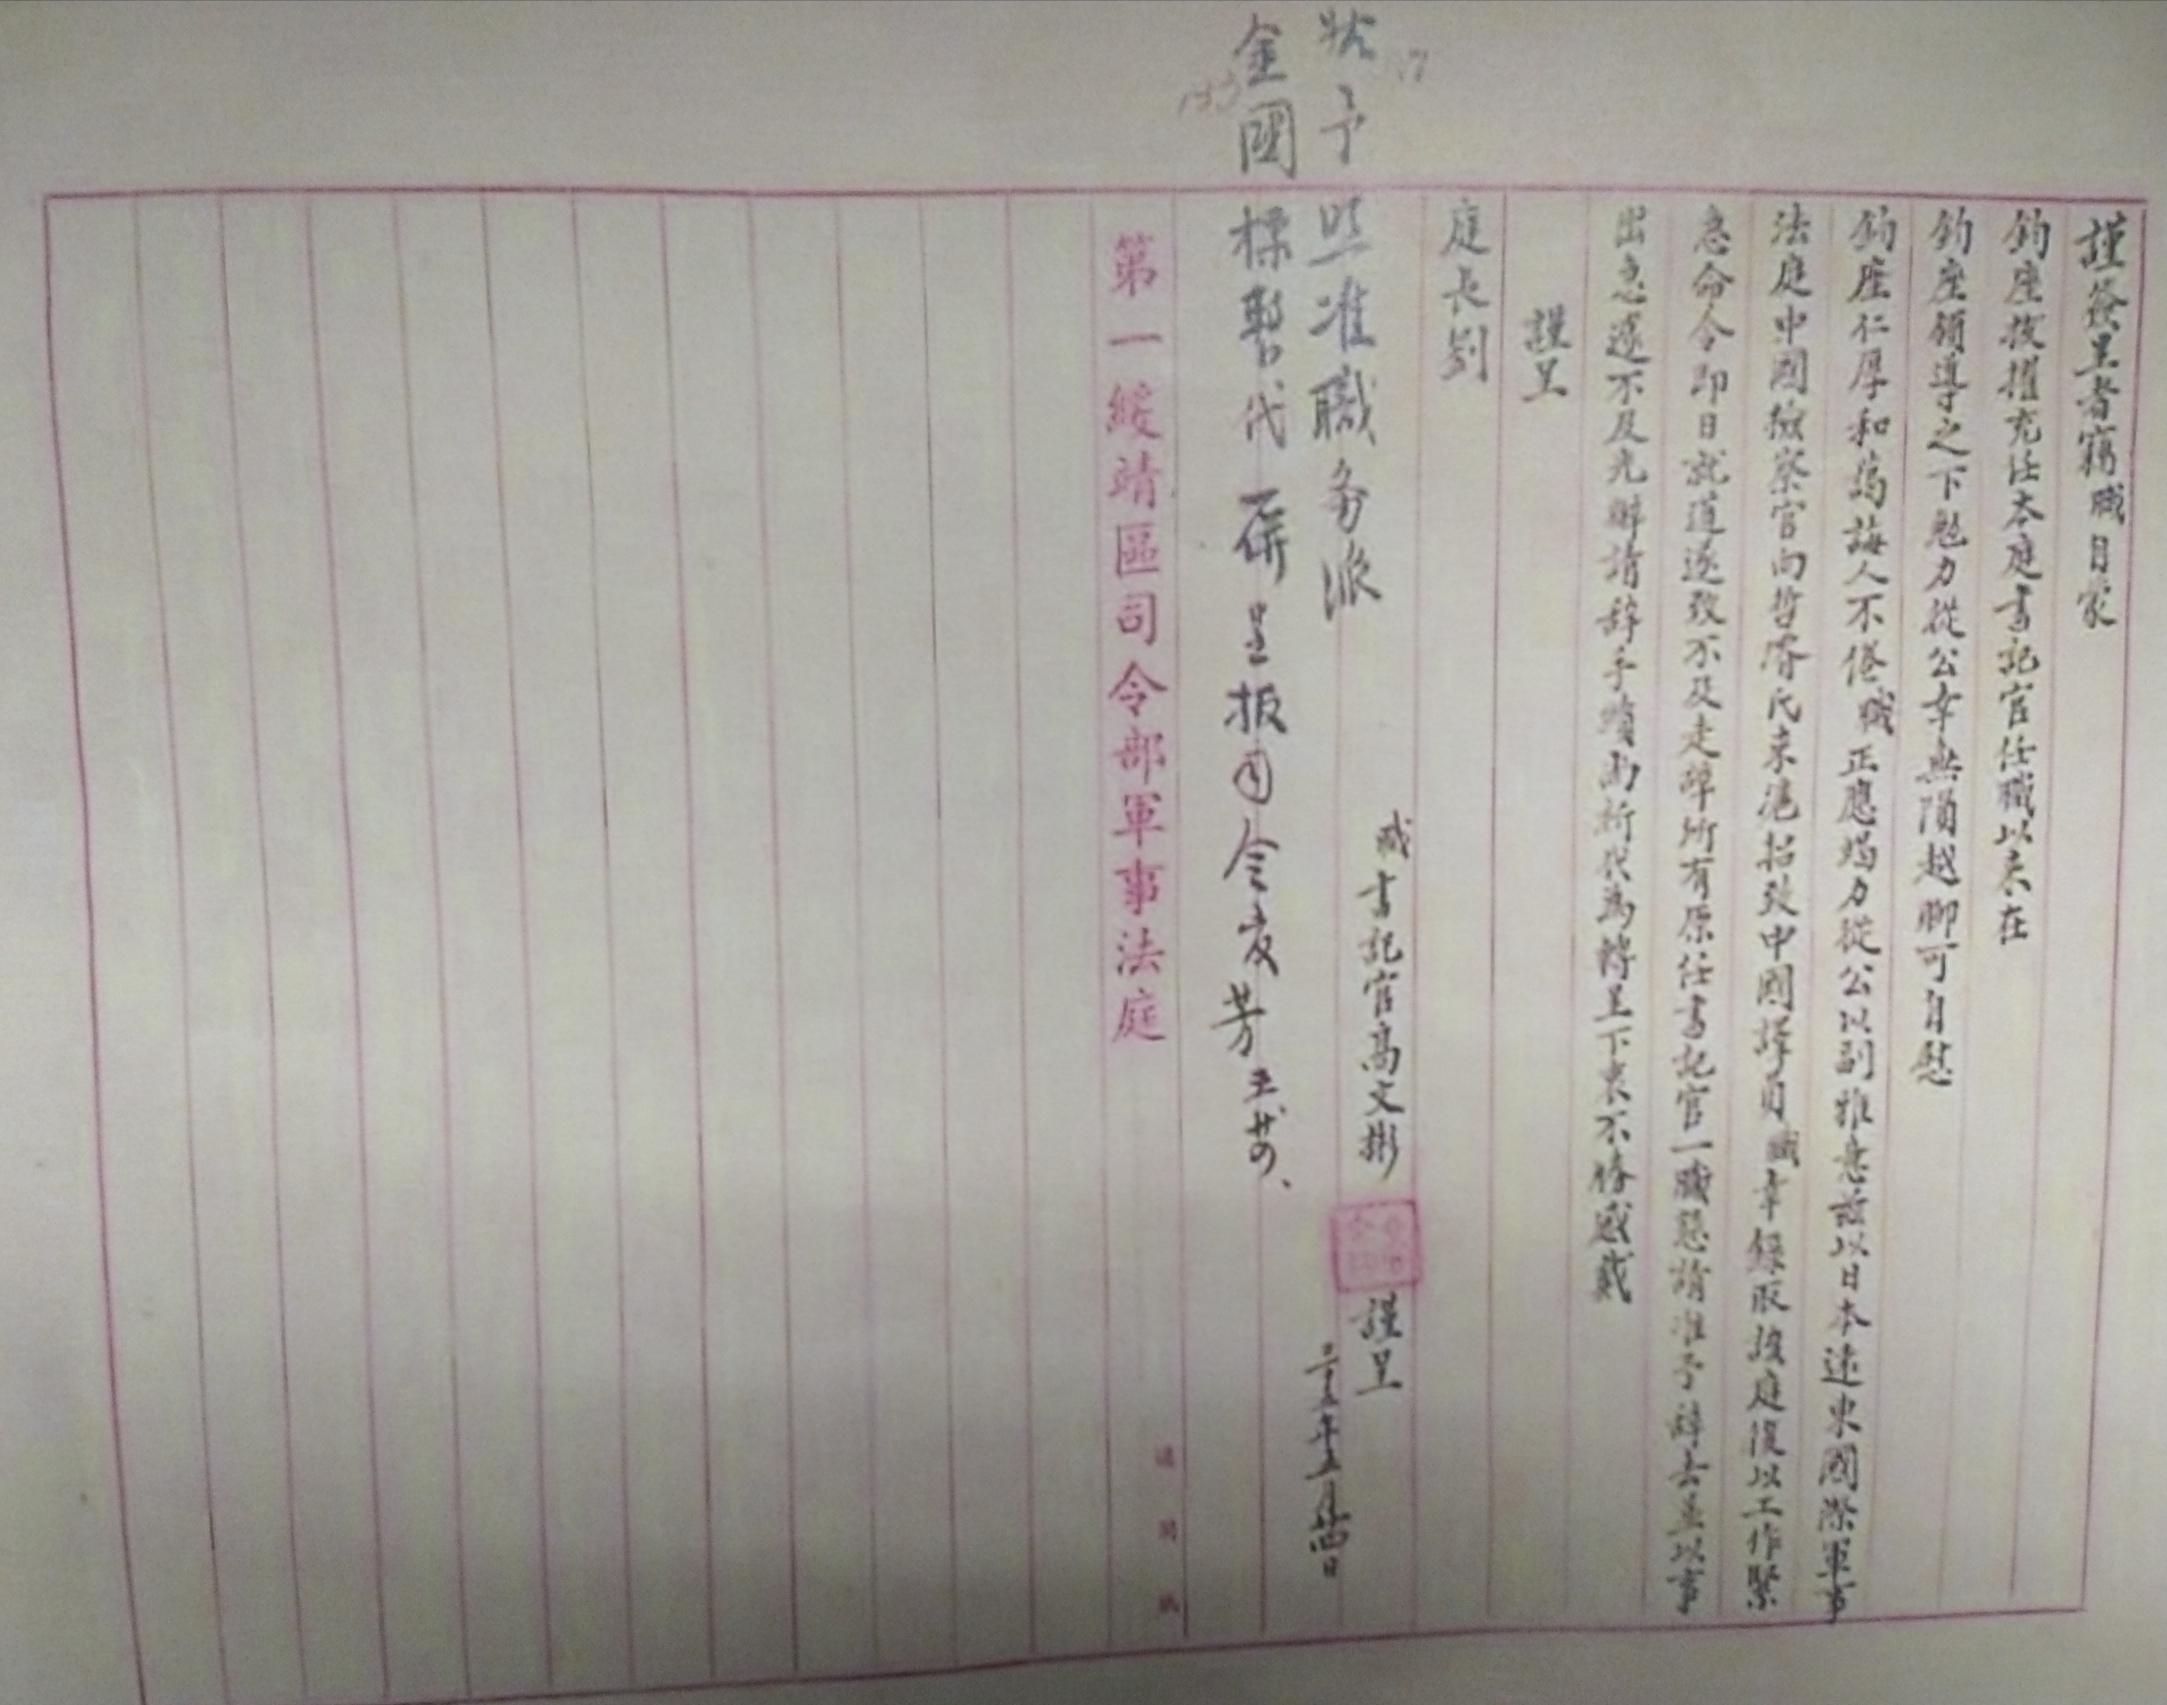 謹簽呈者竊職自蒙
鈞座拔擢充任本庭書記官任職以來在
鈞座領導之下勉力從公幸無隕越聊可自慰
鈞座仁厚和藹誨人不倦職正應竭力從公以副雅意茲以日本遠東國際軍事
法庭中國檢察官向哲濬氏來滬招致中國譯員職幸錄取該庭復以工作緊
急命令即日就道遂致不及走辭所有原任書記官一職懇請准予辭去並以事
出急遽不及先辦請辭手續尚祈代為轉呈下衷不勝感戴
謹呈
庭長劉
職書記官高文彬 謹呈
三十五年五月廿四日
狀予照准職务派
金國標暫代一併呈报司令
五廿
第一綏靖區司令部軍事法庭